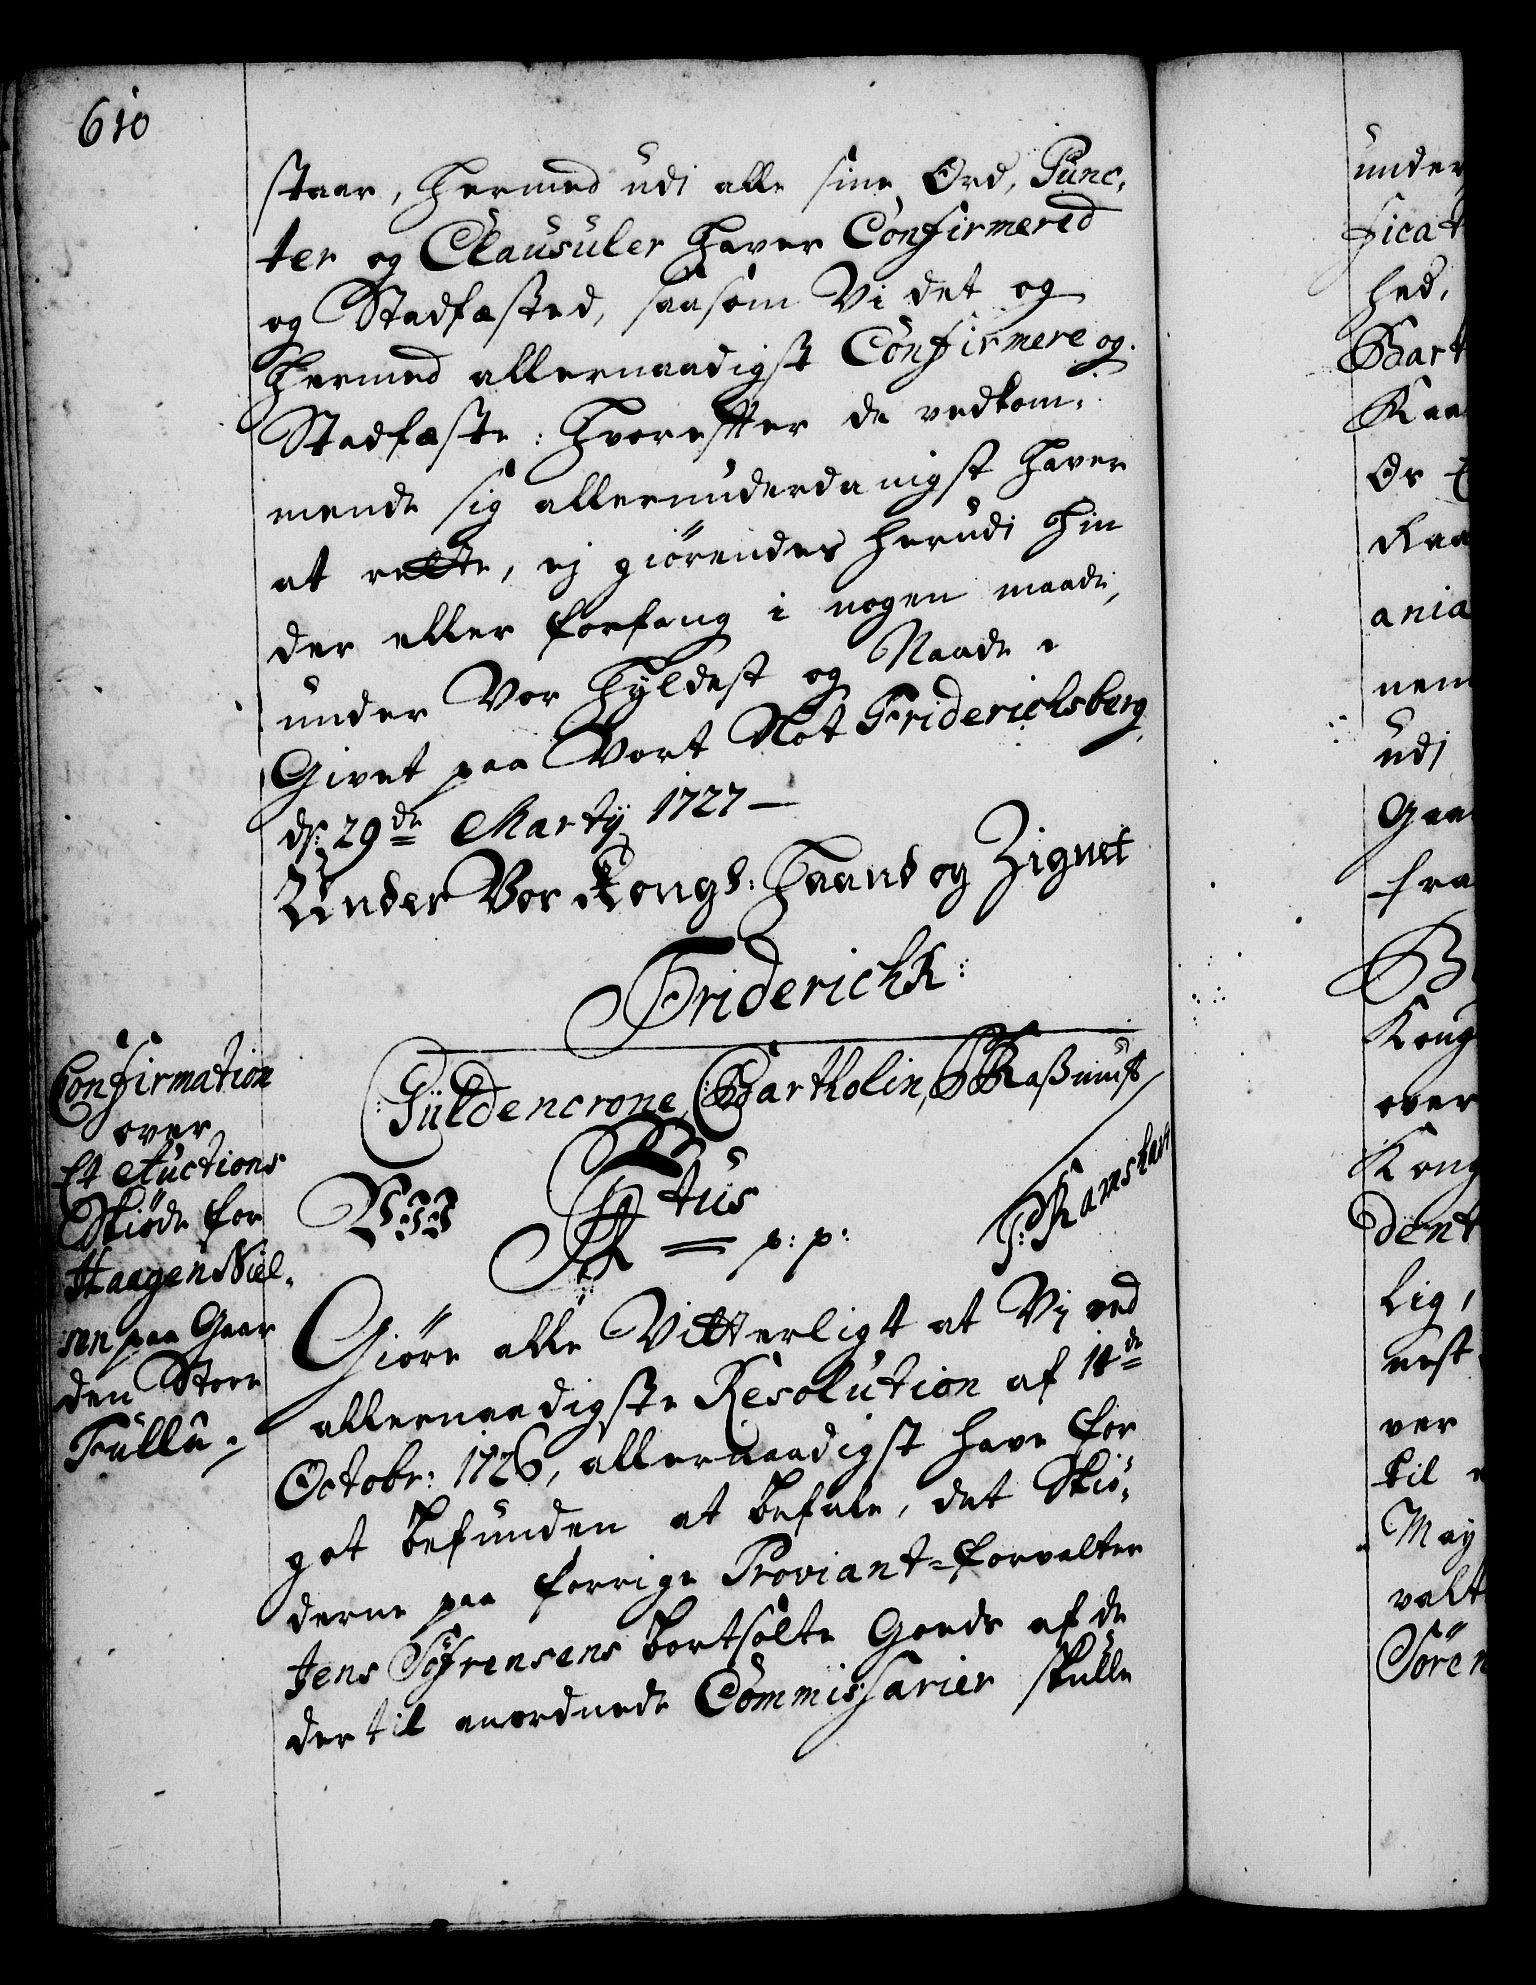 610
staar, hermed udi alle sine Ord, Punc-
ter og Clausuler haver Confirmered
og Stadfæsted, saasom Vi det og
hermed allernaadigst Confirmere og
Stadfæste: Hvorefter de vedkom-
mende sig allerunderdanigst haver
at rette, ej giörendes herudi hin
der eller forfang i nogen maade,
under Vor Hyldest og Naade.
Givet paa Vort Slot Friderichsberg
d: 29de Martij 1727 —
Under Vor Kongl: Haand og Zignet
Friderich R:
Güldencrone, Bartholin, Raßmuß
F: Ramshart
Confirmation
over
Et Auctions
Skiöde for
Haagen Niel-
sen paa Gaar
den Store
Fulla
F 4tus
R = p: p:
Giöre alle Vitterligt at Vi ved
allernaadigste Resolution af 14de
Octobr: 1726, allernaadigst have for
got befunden at befale, det Skiö-
derne paa forrige Proviant-forvalter
Jens Söfrensens bortsolte Goeds af de
dertil anordnede Commissarier skulle
under
ficat
hed,
Bart
Kaa
Or
Raa
ania
nem
udi
Gaa
fra
Kong
over
Kong
dent
lig,
nest
ver
til
May
valt
Sören